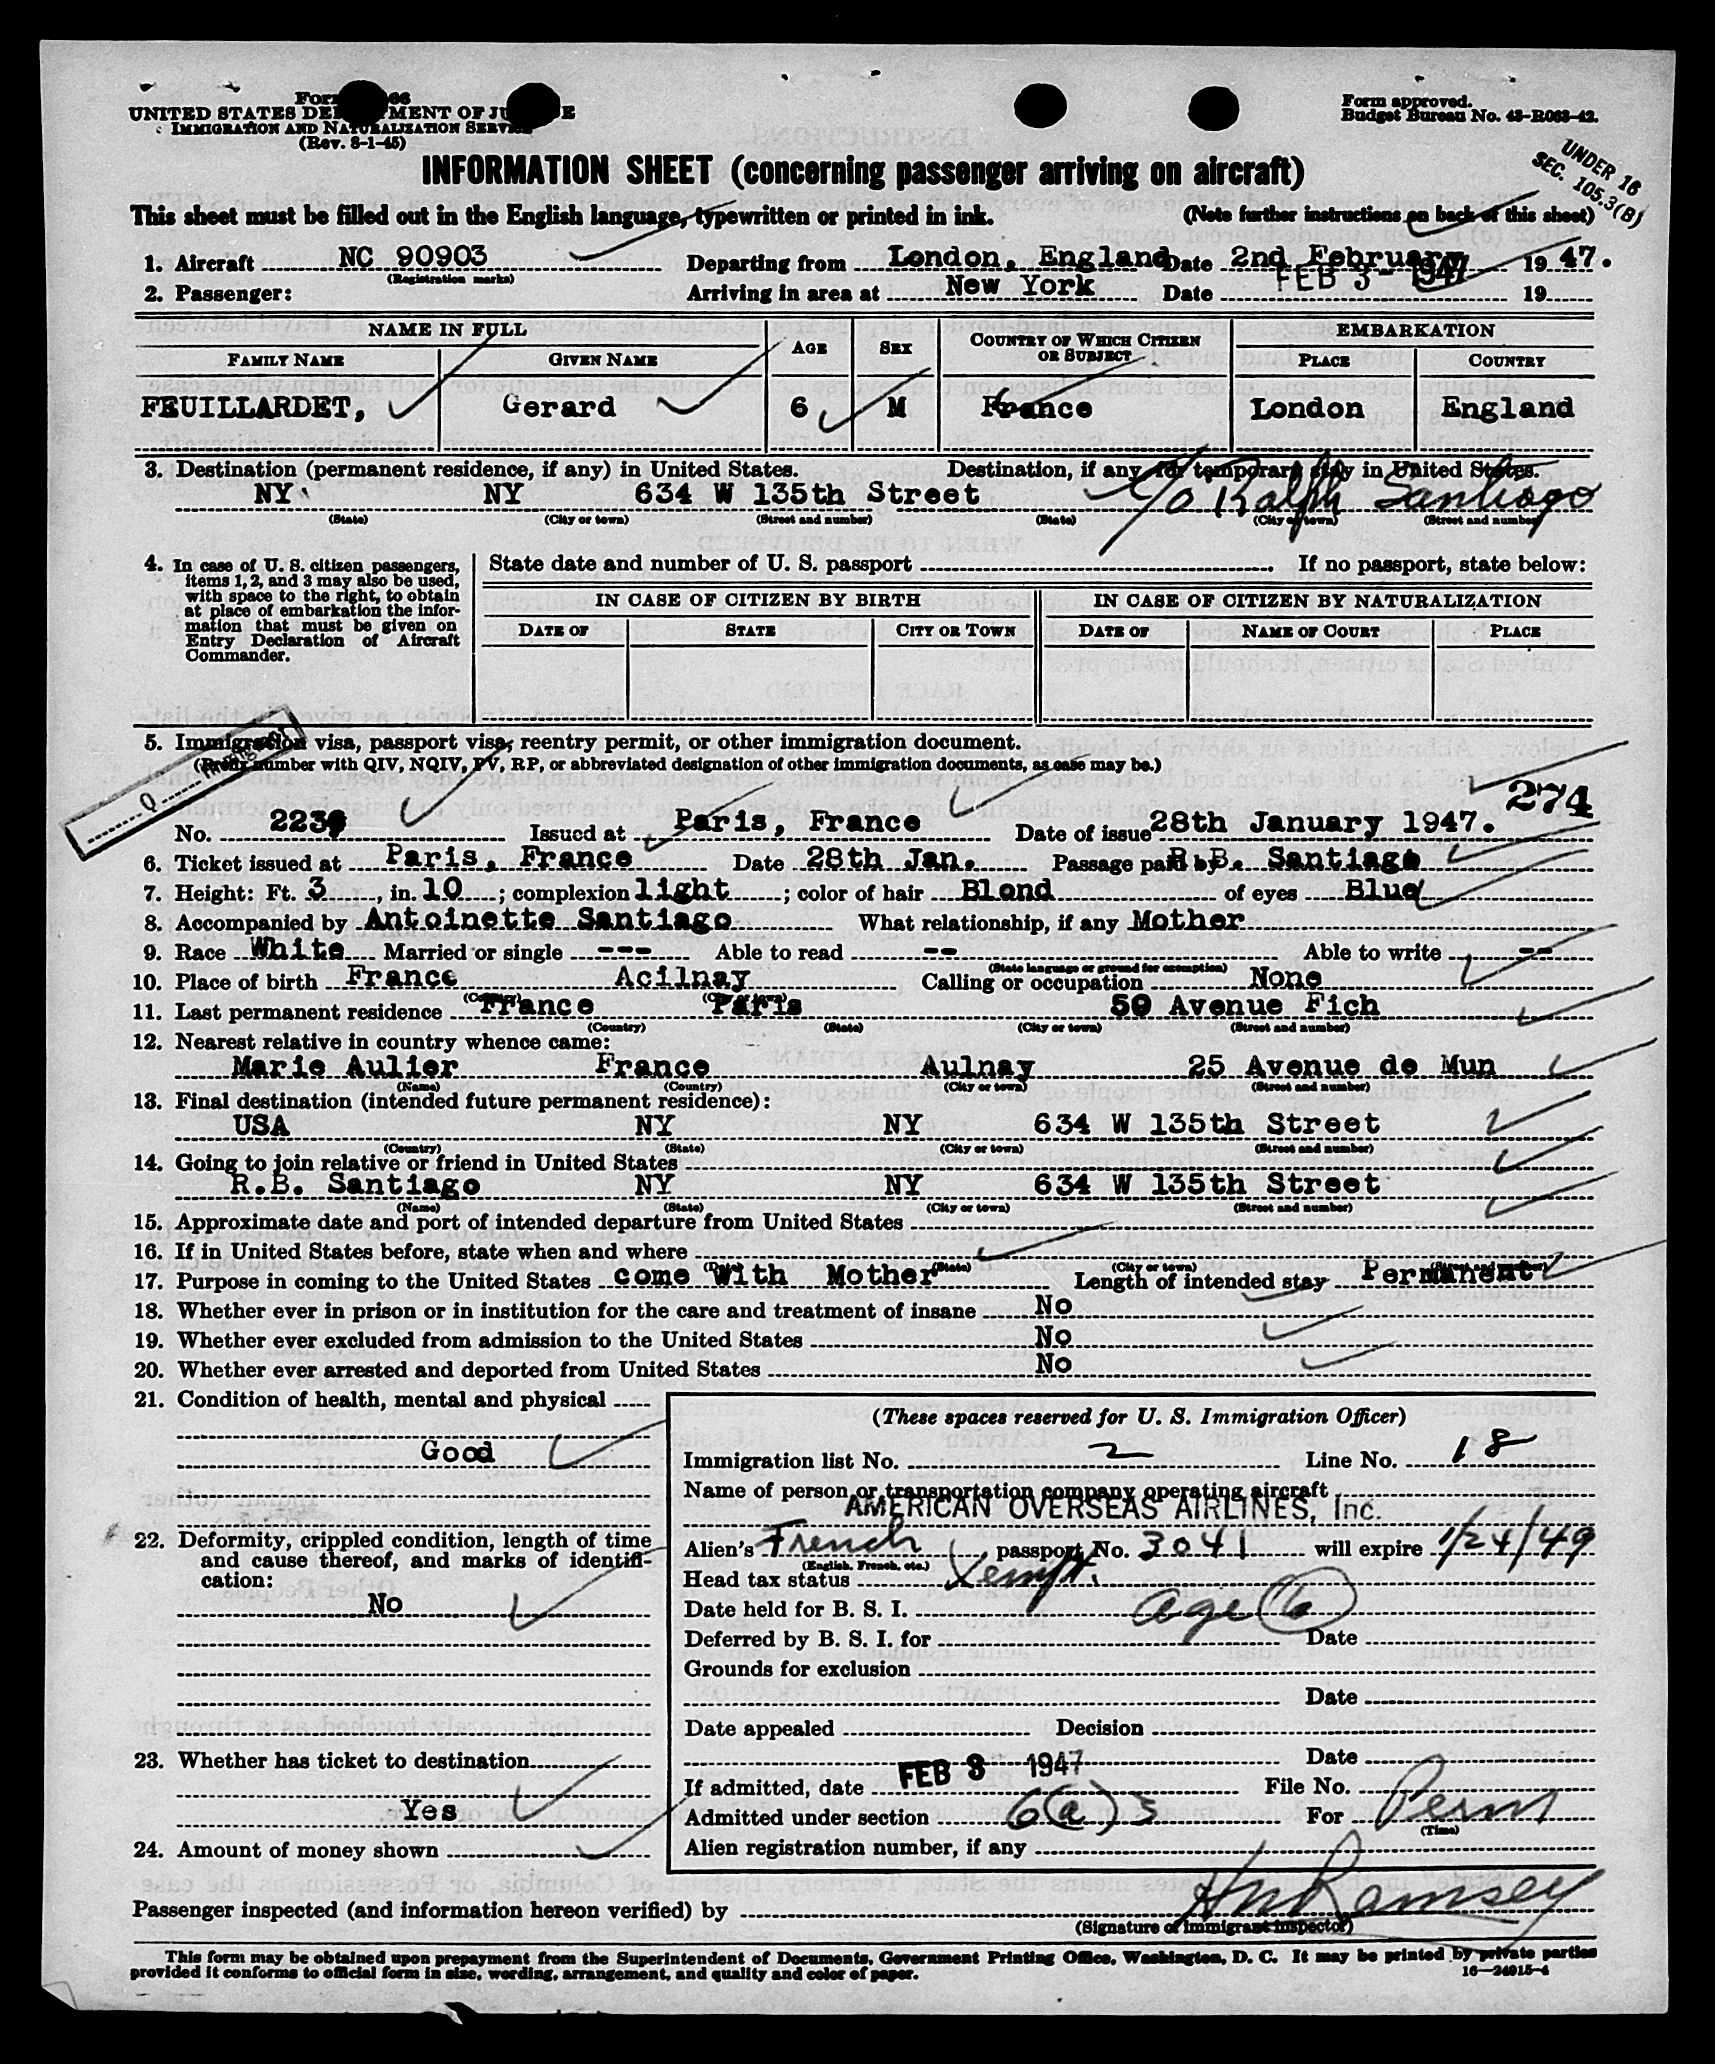 Form
UNITED STATES DEPARTMENT OF JUSTICE
IMMIGRATION AND NATURALIZATION SERVICE
(Rev. 8-1-45)
Form approved.
Budget Bureau No. 43-R063-42.
UNDER 16
SEC. 105.3(B)
INFORMATION SHEET (concerning passenger arriving on aircraft)
This sheet must be filled out in the English language, typewritten or printed in ink. (Note further instructions on back of this sheet)
1. Aircraft NC 90903 Departing from London, England Date 2nd February 1947.
(Registration marks)
2. Passenger: Arriving in area at New York Date FEB 3 - 1947 19
NAME IN FULL AGE SEX COUNTRY OF WHICH CITIZEN OR SUBJECT EMBARKATION
FAMILY NAME GIVEN NAME PLACE COUNTRY
FEUILLARDET, Gerard 6 M France London England
3. Destination (permanent residence, if any) in United States. Destination, if any, for temporary stay in United States.
NY NY 634 W 135th Street c/o Ralph Santiago
(State) (City or town) (Street and number) (State) (City or town) (Street and number)
4. In case of U. S. citizen passengers, items 1, 2, and 3 may also be used, with space to the right, to obtain at place of embarkation the information that must be given on Entry Declaration of Aircraft Commander.
State date and number of U. S. passport If no passport, state below:
IN CASE OF CITIZEN BY BIRTH IN CASE OF CITIZEN BY NATURALIZATION
DATE OF STATE CITY OR TOWN DATE OF NAME OF COURT PLACE
5. Immigration visa, passport visa, reentry permit, or other immigration document.
(Prefix number with QIV, NQIV, PV, RP, or abbreviated designation of other immigration documents, as case may be.)
Q
274
No. 2239 Issued at Paris, France Date of issue 28th January 1947.
6. Ticket issued at Paris, France Date 28th Jan. Passage paid by R.B. Santiago
7. Height: Ft. 3, in. 10; complexion light; color of hair Blond of eyes Blue
8. Accompanied by Antoinette Santiago What relationship, if any Mother
9. Race White Married or single --- Able to read -- Able to write --
(State language or ground for exemption)
10. Place of birth France Acilnay Calling or occupation None
(Country) (City or town)
11. Last permanent residence France Paris 50 Avenue Fich
(Country) (State) (City or town) (Street and number)
12. Nearest relative in country whence came:
Marie Aulier France Aulnay 25 Avenue de Mun
(Name) (Country) (City or town) (Street and number)
13. Final destination (intended future permanent residence):
USA NY NY 634 W 135th Street
(Country) (State) (City or town) (Street and number)
14. Going to join relative or friend in United States
R.B. Santiago NY NY 634 W 135th Street
(Name) (State) (City or town) (Street and number)
15. Approximate date and port of intended departure from United States
16. If in United States before, state when and where
(Date) (State) (City or town) (Street and number)
17. Purpose in coming to the United States come With Mother Length of intended stay Permanent
18. Whether ever in prison or in institution for the care and treatment of insane No
19. Whether ever excluded from admission to the United States No
20. Whether ever arrested and deported from United States No
21. Condition of health, mental and physical
Good
22. Deformity, crippled condition, length of time and cause thereof, and marks of identification:
No
23. Whether has ticket to destination
Yes
24. Amount of money shown
(These spaces reserved for U. S. Immigration Officer)
Immigration list No. 2 Line No. 18
Name of person or transportation company operating aircraft
AMERICAN OVERSEAS AIRLINES, Inc.
Alien's French passport No. 3041 will expire 1/24/49
(English, French, etc.)
Head tax status Xempt.
Date held for B. S. I. age 6
Deferred by B. S. I. for Date
Grounds for exclusion
Date
Date appealed Decision
Date
If admitted, date FEB 3 1947 File No.
Admitted under section 6(a)3 For Perm
(Time)
Alien registration number, if any
Passenger inspected (and information hereon verified) by HM Ramsey
(Signature of immigrant inspector)
This form may be obtained upon prepayment from the Superintendent of Documents, Government Printing Office, Washington, D. C. It may be printed by private parties
provided it conforms to official form in size, wording, arrangement, and quality and color of paper.
16—24915-4